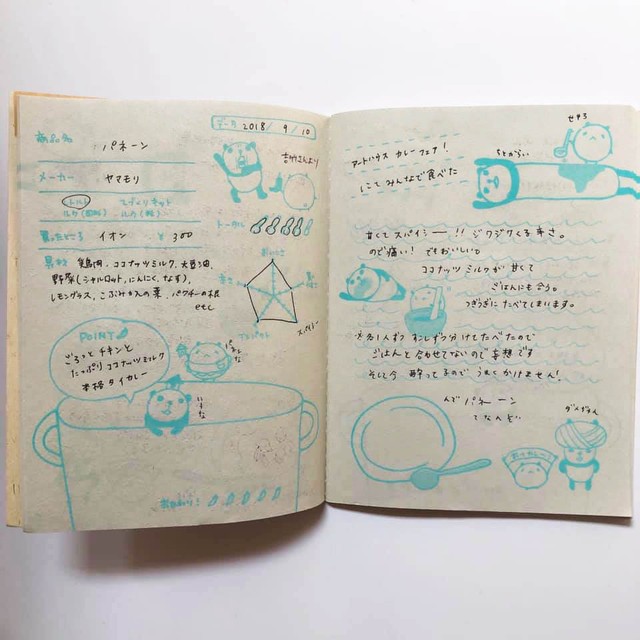 データ 2018/9/10
商品名 パネーン
吉竹さんより
メーカー ヤマモリ
レトルト
ルウ(固形) ルウ(粉)
トータル
買ったところ イオン ¥ 300
具材 鶏肉、ココナッツミルク、大豆油
野菜(シャルロット、にんにく、なす)、
レモングラス、こぶみかんの葉、パクチーの根
辛さ
スパイシー
POINT
ごろっとチキンと
たっぷりココナッツミルク
本格タイカレー
パネーン
いいな
おかわり!
せやろ
アートハウス カレーフェア!
ちとからい
にて みんなで食べた
甘くてスパイシー!! ジワジワくる辛さ。
のど痛い! でもおいしい。
ココナッツミルクが甘くて
ごはんにも合う。
つぎつぎにたべてしまいます。
少しずつ分けてたべたので
ごはんと合わせてないので妄想です
そして今 酔ってるので うまくかけません!
パネーン
てなんぞ